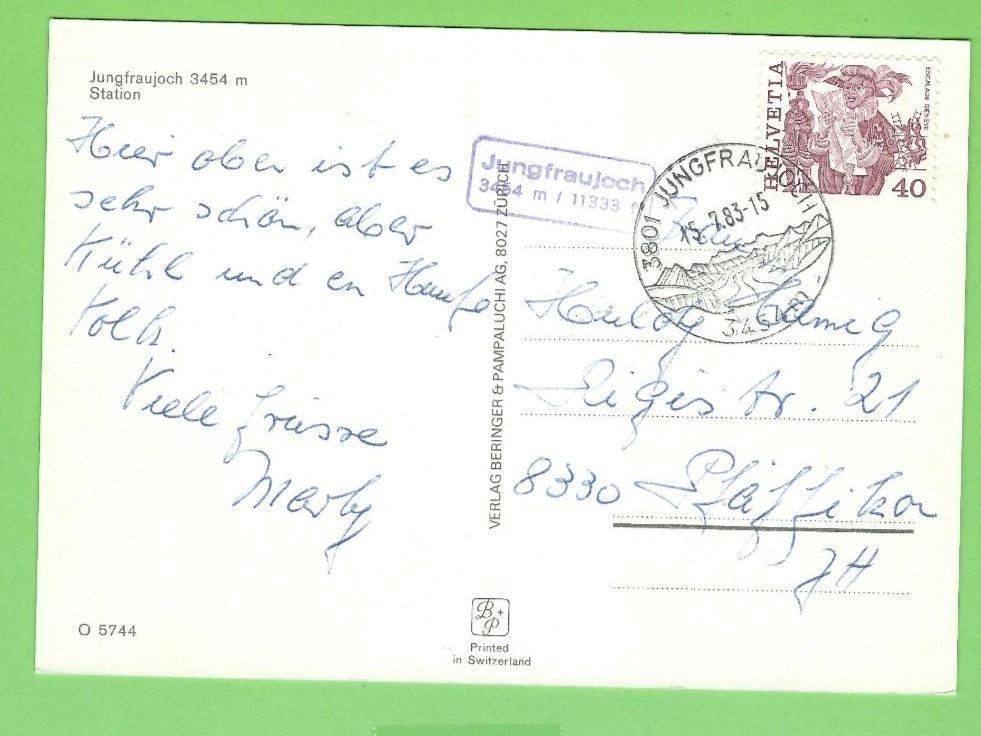 Jungfraujoch 3454 m
Station
Hier oben ist es
sehr schön, aber
Kühl und en Haufe
Volk.
Viele Grüsse
Jungfraujoch
3454 m / 11333 f
VERLAG BERINGER & PAMPALUCHI AG, 8027 ZÜRICH
HELVETIA
ESCALADE GENÈVE
40
3801 JUNGFRAUJOCH
15.7.83-15
3454 m
Frau
Rigistr. 21
8330 Pfäffikon
ZH
O 5744
B + P
Printed
in Switzerland